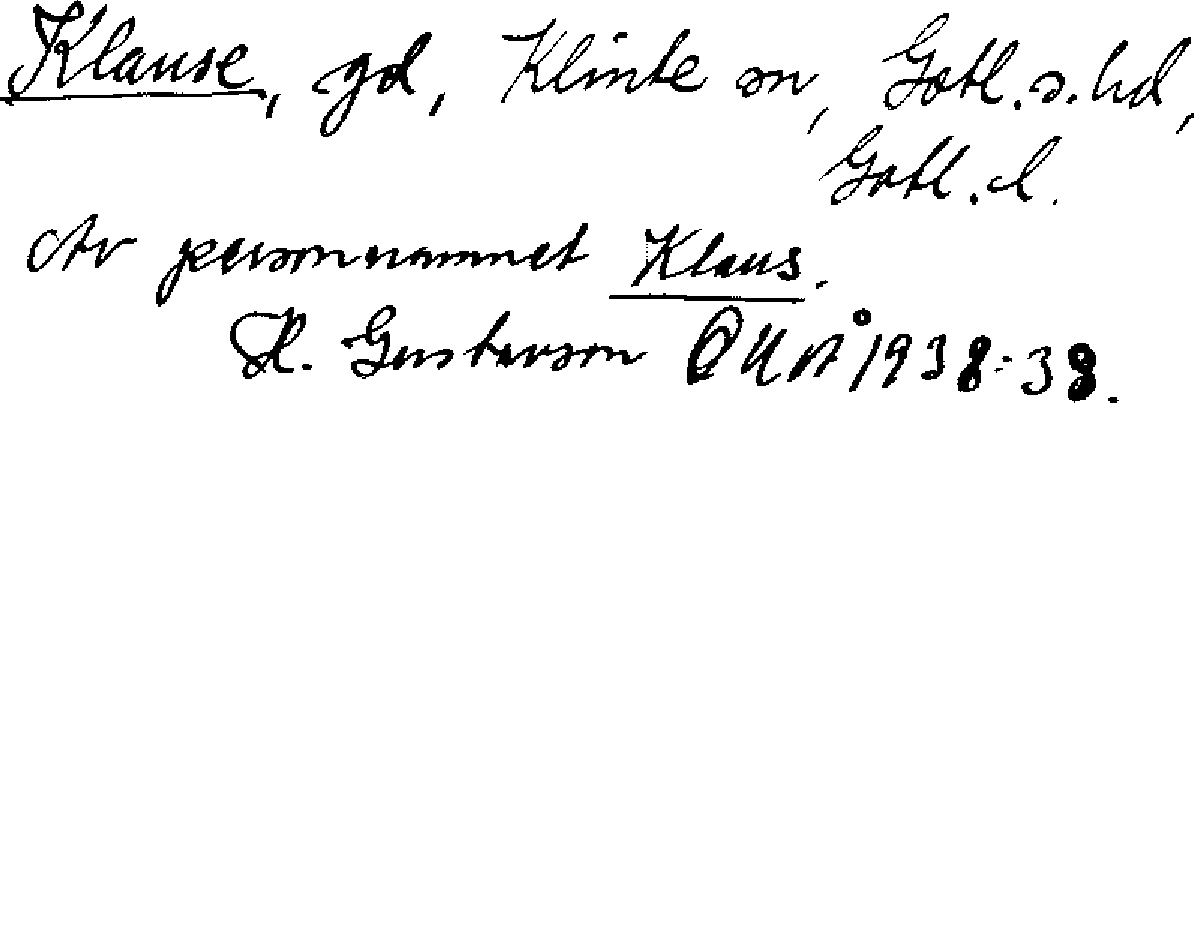 Klause, gd, Klinte sn, Gotl. s. hd,
Gotl. l.
Av personnamnet Klaus.
H. Gustavson 1938:38.